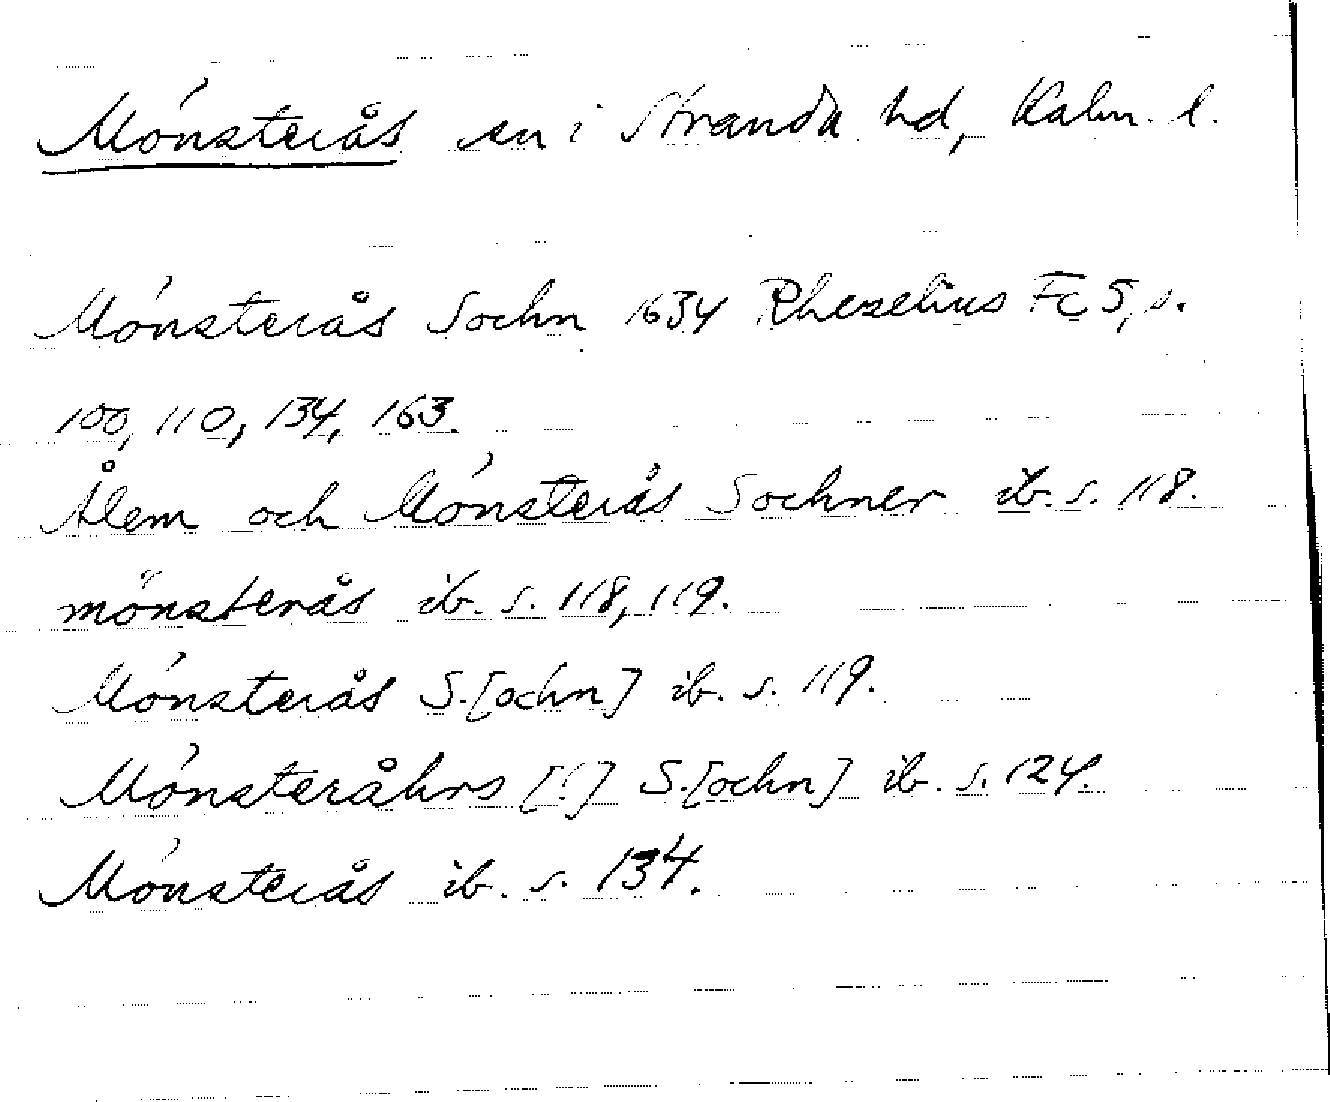 Mönsterås sn i Stranda hd, Kalm. l.
Mönsterås Sochn 1634 Rhezelius Fc 5, s.
100, 110, 134, 163.
Ålem och Mönsterås Sochner ib. s. 118.
mönsterås ib. s. 118, 119.
Mönsterås S.[ochn] ib. s. 119.
Mönsteråhrs [!] S.[ochn] ib. s. 124.
Mönsterås ib. s. 134.